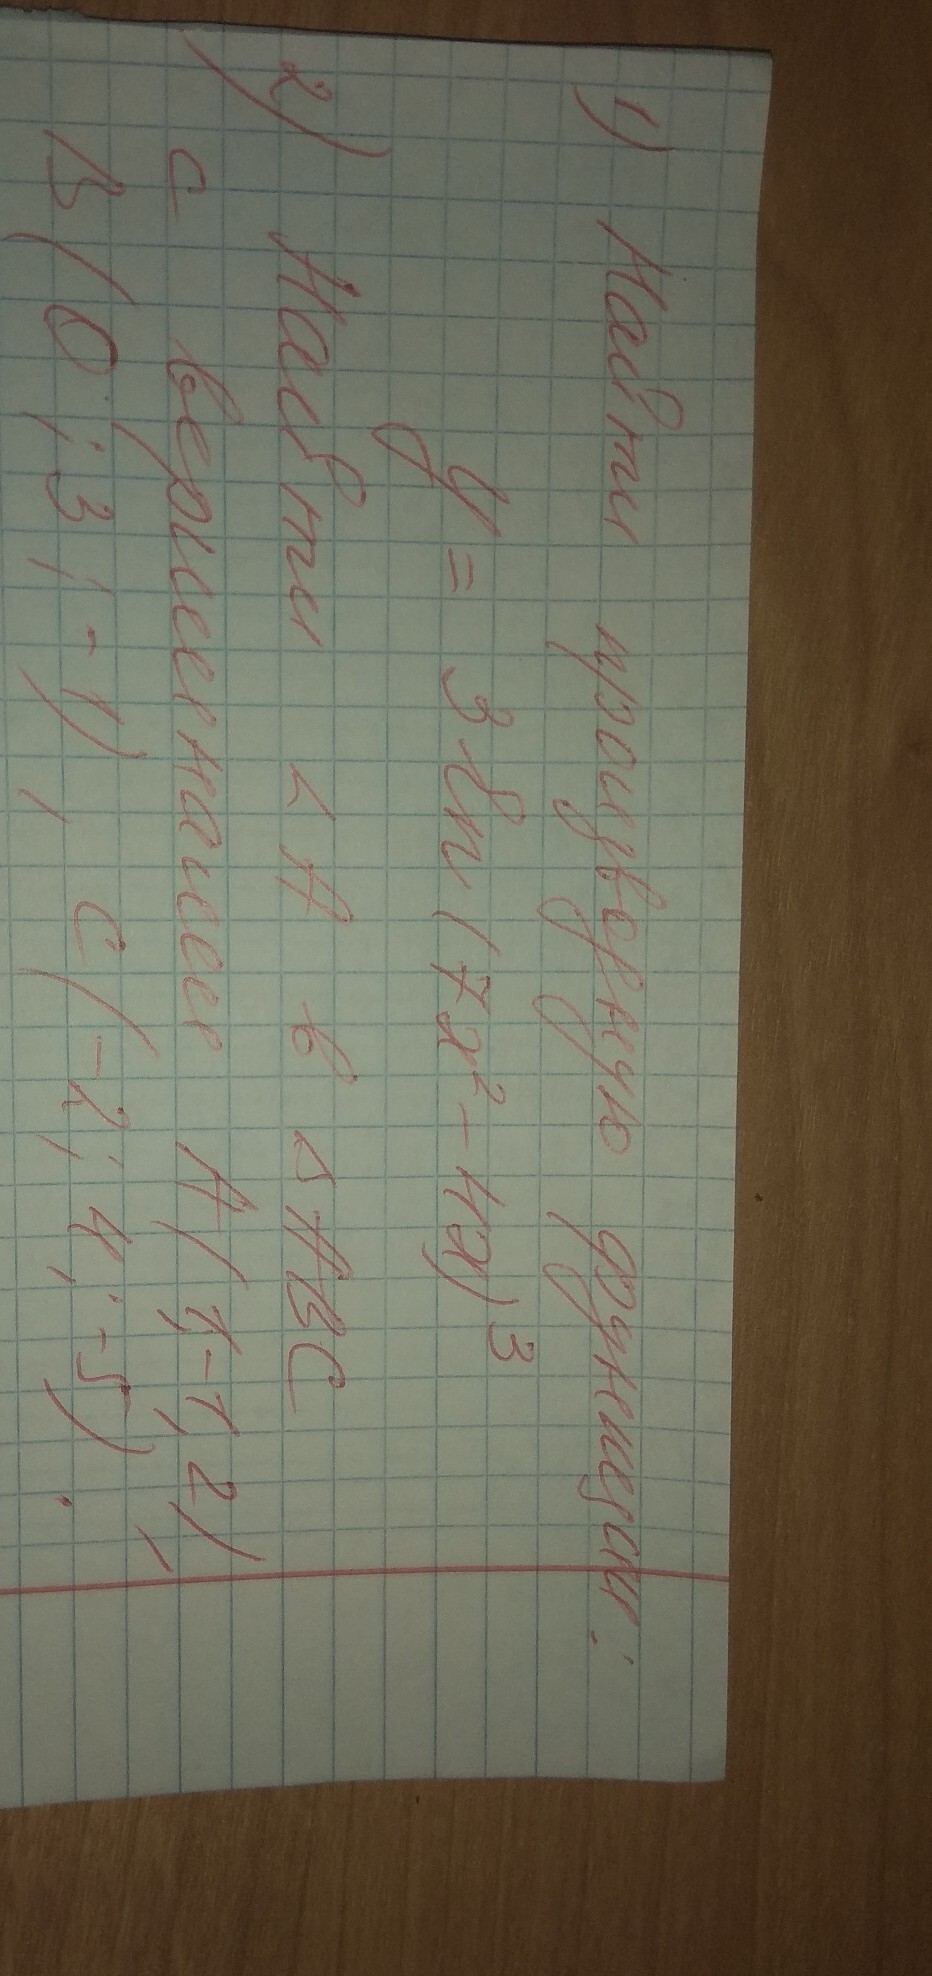 1) Найти производную функции:
y = 3 ln (7x² - 4x)³
2) Найти ∠A в △ABC
с вершинами A(1; -1; 2),
B(0; 3; -1), C(-2; 4; -5).